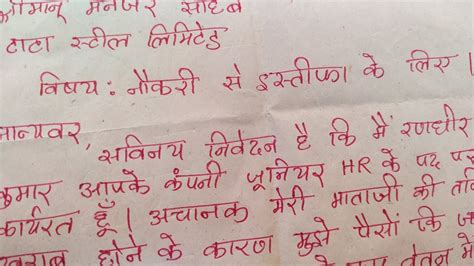 श्रीमान् मैनेजर साहब
टाटा स्टील लिमिटेड
विषय : नौकरी से इस्तीफा के लिए |
मान्यवर,
सविनय निवेदन है कि मैं रणधीर
कुमार आपके कंपनी जूनियर HR के पद पर
कार्यरत हूँ | अचानक मेरी माताजी की
खराब होने के कारण मुझे पैसों कि
वेतन में